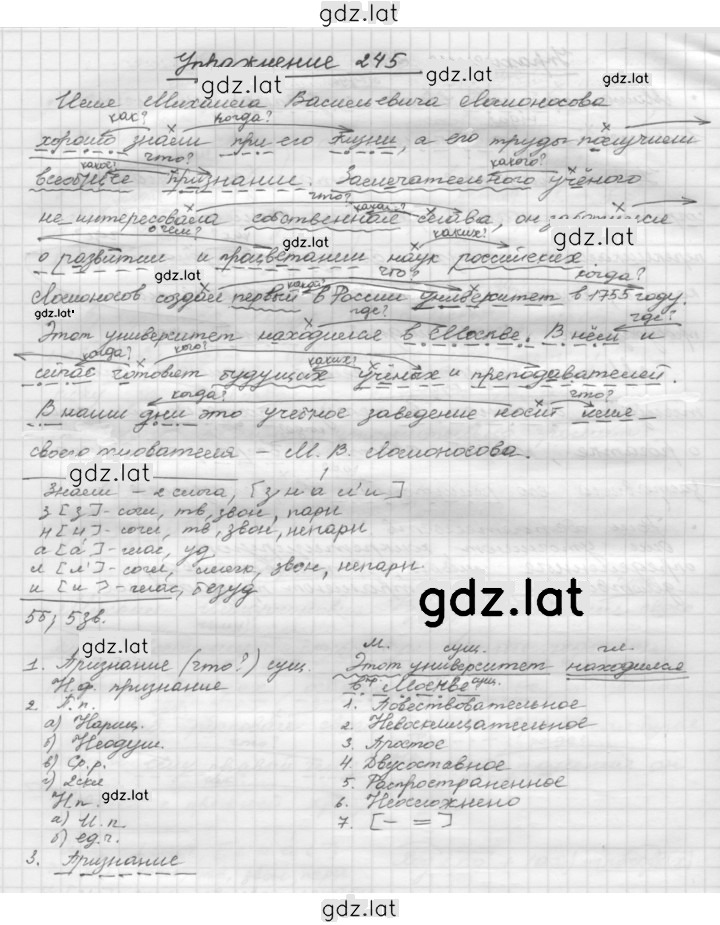 gdz.lat
Упражнение 245
gdz.lat gdz.lat gdz.lat
Имя Михаила Васильевича Ломоносова
как? когда?
хорошо знали при его жизни, а его труды получили
какое? что? какого?
всеобщее признание. Замечательного учёного
что? какая?
не интересовала собственная слава, он
о чём? gdz.lat каких? gdz.lat
о развитии и процветании наук российских.
что? какой? когда?
Ломоносов создал первый в России университет в 1755 году.
gdz.lat где? где?
Этот университет находился в Москве. В нём и
когда? кого? каких?
сейчас готовят будущих учёных и преподавателей.
когда? что?
В наши дни это учебное заведение носит имя
своего – М. В. Ломоносова.
gdz.lat
Знали – 2 слога, [з н а л' и]
з [з] - согл, тв, звон, парн
н [н] - согл, тв, звон, непарн
а [а] - глас, уд
л [л'] - согл, мягк, звон, непарн
и [и] - глас, безуд
gdz.lat
5б, 5зв.
gdz.lat
1. Признание (что?) сущ.
Н.ф. признание
2. П.п.
а) Нариц.
б) Неодуш.
в) Ср.р.
г) 2скл
gdz.lat
Н.п.
а) И.п.
б) ед.ч.
3. Признание
м. сущ. гл.
Этот университет находился
пр. сущ.
в Москве.
1. Повествовательное
2. Невосклицательное
3. Простое
4. Двусоставное
5. Распространенное
6. Неосложнено
7. [– =]
gdz.lat